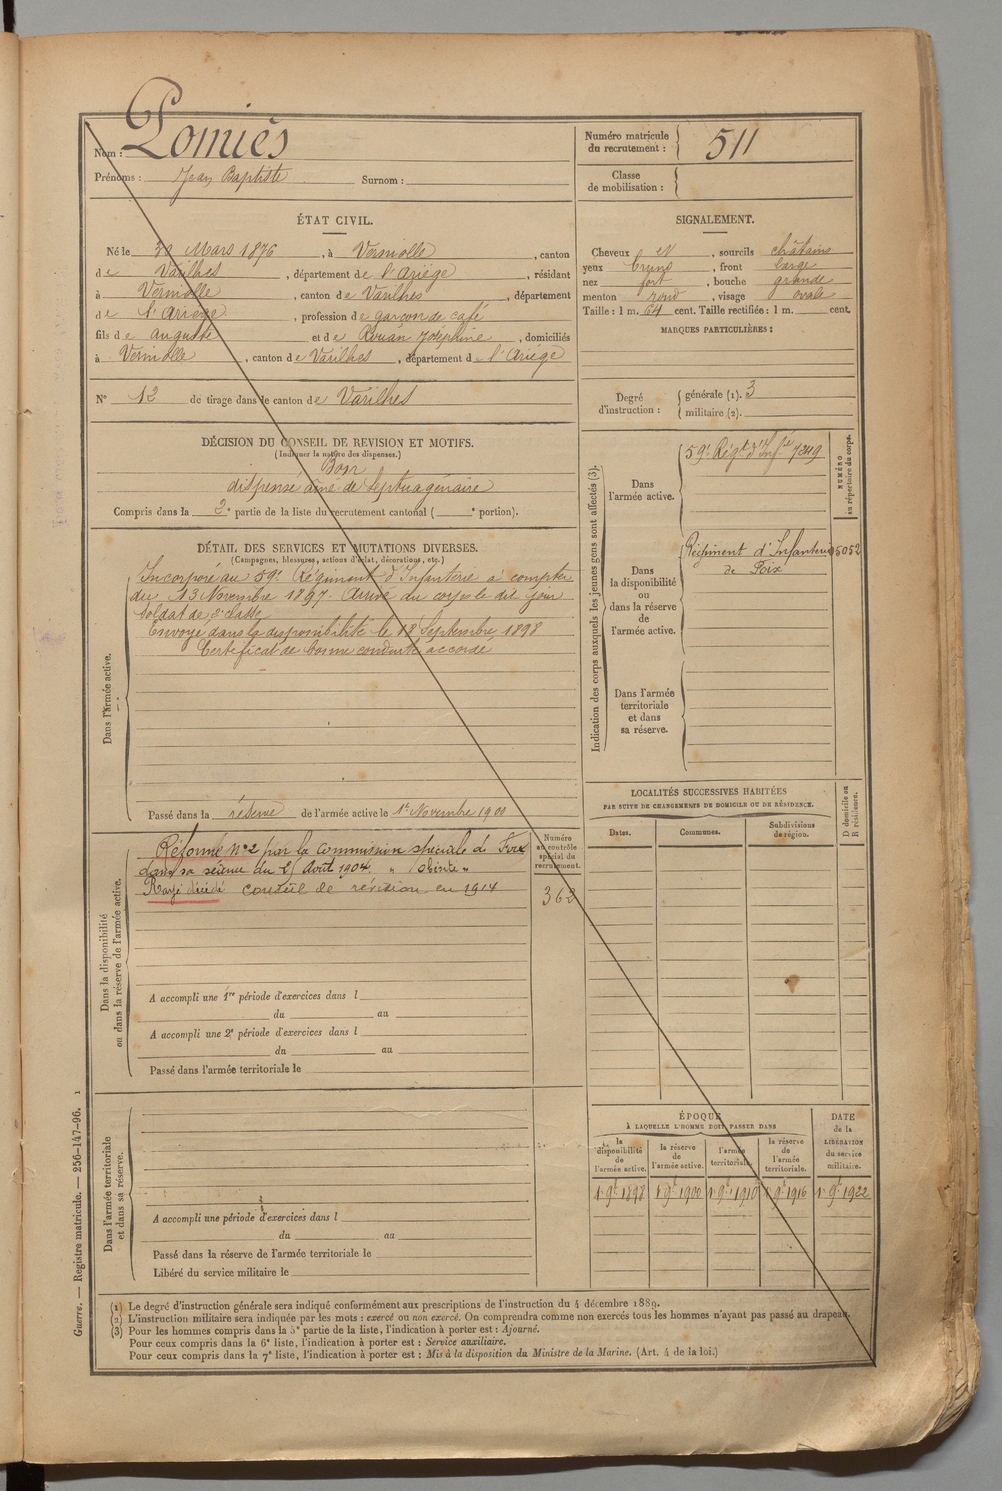 Nom : Pomiès
Prénoms : Jean Baptiste Surnom :
Numéro matricule du recrutement : 511
Classe de mobilisation :
ÉTAT CIVIL.
Né le Mars 1876, à Verniolle, canton
de Varilhes, département de l'Ariège, résidant
à Verniolle, canton de Varilhes, département
de l'Ariège, profession de garçon de café
fils de Auguste et de Rouan Joséphine, domiciliés
à Verniolle, canton de Varilhes, département de l'Ariège
N° 12 de tirage dans le canton de Varilhes
SIGNALEMENT.
Cheveux et, sourcils châtains
yeux bruns, front large
nez fort, bouche grande
menton rond, visage ovale
Taille : 1 m. 64 cent. Taille rectifiée : 1 m. cent.
MARQUES PARTICULIÈRES :
Degré d'instruction :
générale (1). 3
militaire (2).
DÉCISION DU CONSEIL DE REVISION ET MOTIFS.
(Indiquer la nature des dispenses.)
Bon
dispensé aîné de septuagénaire
Compris dans la 2e partie de la liste du recrutement cantonal ( e portion).
DÉTAIL DES SERVICES ET MUTATIONS DIVERSES.
(Campagnes, blessures, actions d'éclat, décorations, etc.)
Dans l'armée active.
Incorporé au 59e Régiment d'Infanterie à compter
du 13 Novembre 1897. Arrivé au corps le dit jour
Soldat de 2e classe
Envoyé dans la disponibilité le 18 Septembre 1898
Certificat de bonne conduite accordé
Passé dans la réserve de l'armée active le 1er Novembre 1900
Indication des corps auxquels les jeunes gens sont affectés (3).
NUMÉRO au répertoire du corps.
Dans l'armée active.
59e Régt d'Infie 7249
Dans la disponibilité ou dans la réserve de l'armée active.
Régiment d'Infanterie 05052
de Foix
Dans l'armée territoriale et dans sa réserve.
Dans la disponibilité ou dans la réserve de l'armée active.
Réformé N°2 par la Commission spéciale de Foix
dans sa séance du Août 1904.
Rayé décédé conseil de révision en 1914
Numéro au contrôle spécial du recrutement.
362
A accompli une 1re période d'exercices dans l
du au
A accompli une 2e période d'exercices dans l
du au
Passé dans l'armée territoriale le
LOCALITÉS SUCCESSIVES HABITÉES
PAR SUITE DE CHANGEMENTS DE DOMICILE OU DE RÉSIDENCE.
Dates. Communes. Subdivisions de région. D domicile ou R résidence.
Dans l'armée territoriale et dans sa réserve.
A accompli une période d'exercices dans l
du au
Passé dans la réserve de l'armée territoriale le
Libéré du service militaire le
ÉPOQUE
À LAQUELLE L'HOMME DOIT PASSER DANS
la disponibilité de l'armée active.
la réserve de l'armée active.
l'armée territoriale.
la réserve de l'armée territoriale.
DATE de la LIBÉRATION du service militaire.
1 9bre 1898 1 9bre 1900 1 9bre 1910 1 9bre 1916 1er 9bre 1922
(1) Le degré d'instruction générale sera indiqué conformément aux prescriptions de l'instruction du 4 décembre 1889.
(2) L'instruction militaire sera indiquée par les mots : exercé ou non exercé. On comprendra comme non exercés tous les hommes n'ayant pas passé au drapeau.
(3) Pour les hommes compris dans la 5e partie de la liste, l'indication à porter est : Ajourné.
Pour ceux compris dans la 6e liste, l'indication à porter est : Service auxiliaire.
Pour ceux compris dans la 7e liste, l'indication à porter est : Mis à la disposition du Ministre de la Marine. (Art. 4 de la loi.)
Guerre. — Registre matricule. — 256-147-96. 1